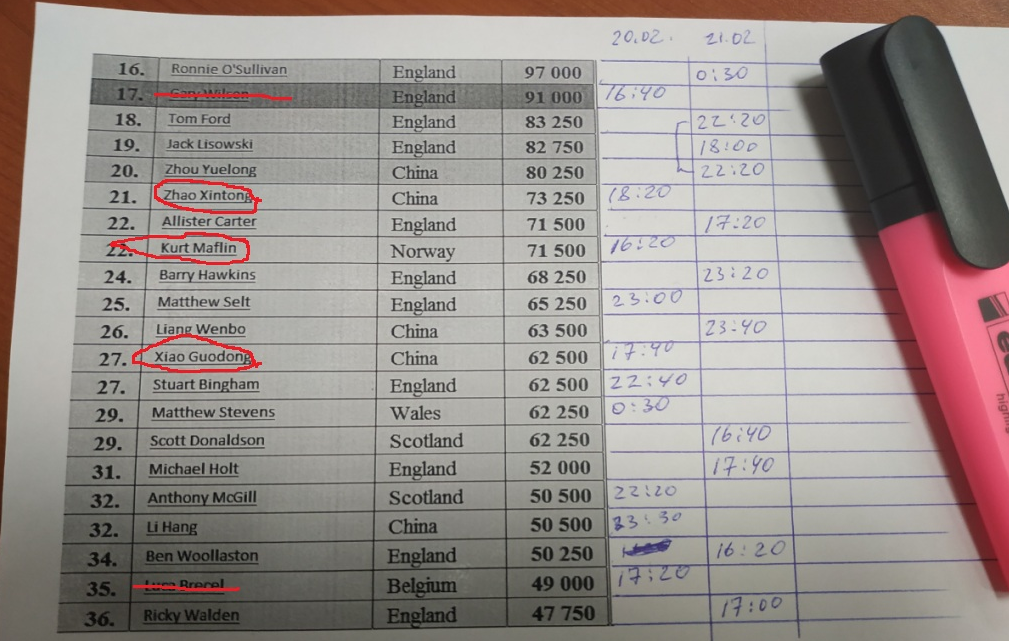 20.02. 21.02
16. Ronnie O'Sullivan England 97 000 0:30
17. Gary Wilson England 91 000 16:40
18. Tom Ford England 83 250 22:20
19. Jack Lisowski England 82 750 18:00
20. Zhou Yuelong China 80 250 22:20
21. Zhao Xintong China 73 250 18:20
22. Allister Carter England 71 500 17:20
22. Kurt Maflin Norway 71 500 16:20
24. Barry Hawkins England 68 250 23:20
25. Matthew Selt England 65 250 23:00
26. Liang Wenbo China 63 500 23:40
27. Xiao Guodong China 62 500 17:40
27. Stuart Bingham England 62 500 22:40
29. Matthew Stevens Wales 62 250 0:30
29. Scott Donaldson Scotland 62 250 16:40
31. Michael Holt England 52 000 17:40
32. Anthony McGill Scotland 50 500 22:20
32. Li Hang China 50 500 23:30
34. Ben Woollaston England 50 250 16:20
35. Luca Brecel Belgium 49 000 17:20
36. Ricky Walden England 47 750 17:00